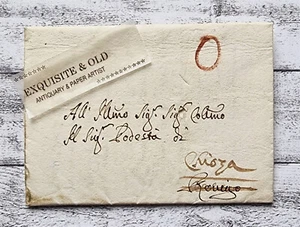 EXQUISITE & OLD
ANTIQUARY & PAPER ARTIST
All Illmo Sigr. Sigr. Colmo
Il Sigr. Podestà di